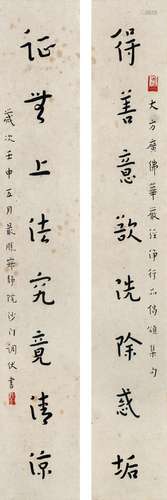 大方廣佛華嚴經淨行品偈頌集句
得善意欲洗除惑垢
証無上法究竟清涼
歲次壬申五月最勝院沙門調伏書